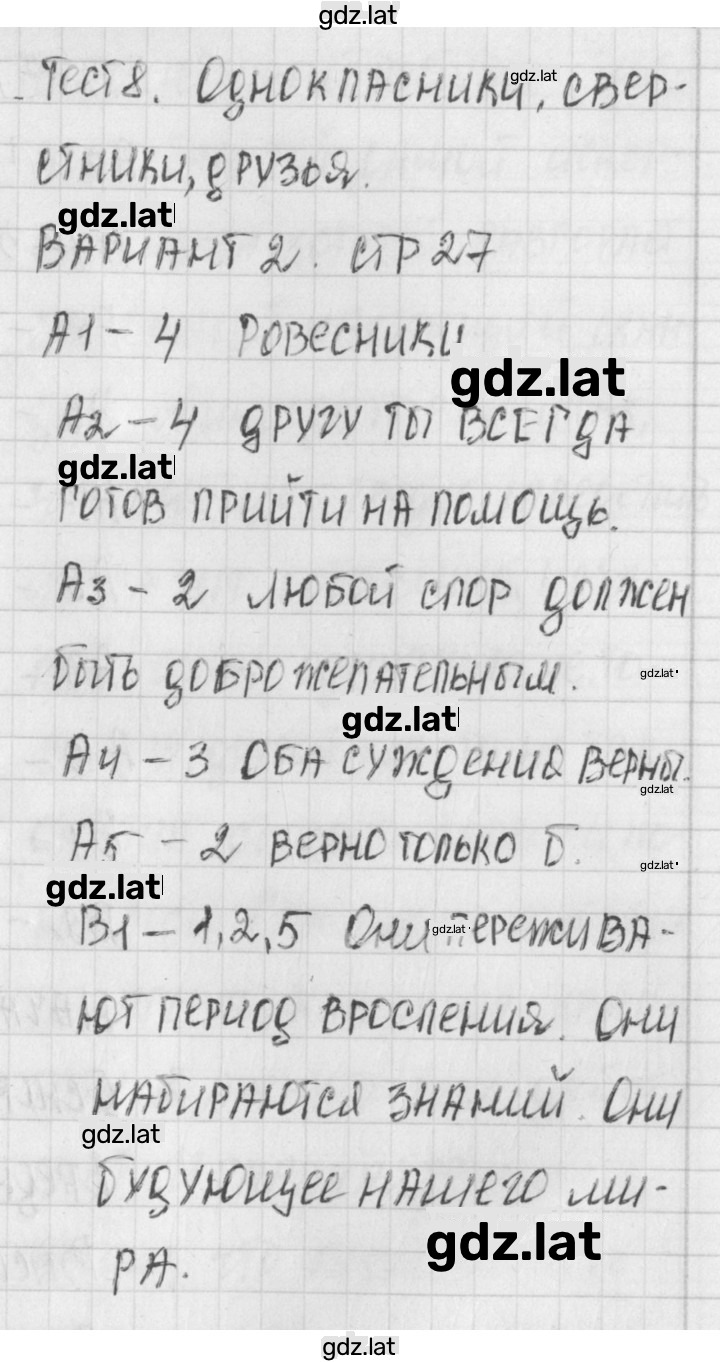 gdz.lat
Тест 8. Однокласники, свер-
gdz.lat
стники, друзья.
gdz.lat
Вариант 2. стр 27
А1 - 4 Ровесники
gdz.lat
А2 - 4 другу ты всегда
gdz.lat
готов прийти на помощь.
А3 - 2 любой спор должен
быть доброжелательным.
gdz.lat
gdz.lat
А4 - 3 Оба суждения верны.
gdz.lat
А5 - 2 верно только Б.
gdz.lat
gdz.lat
В1 - 1,2,5 Они пережива-
gdz.lat
ют период вросления. Они
набираются знаний. Они
gdz.lat
будующее нашего ми-
gdz.lat
ра.
gdz.lat